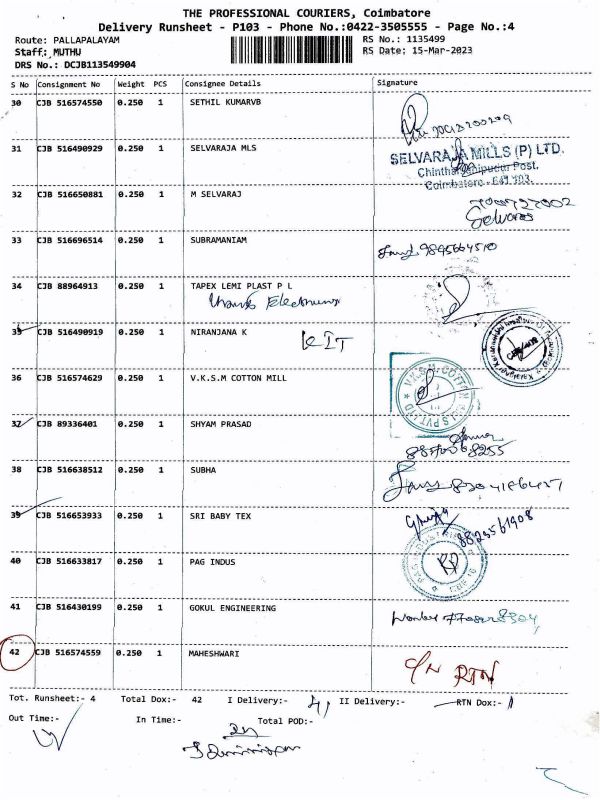 THE PROFESSIONAL COURIERS, Coimbatore
Delivery Runsheet - P103 - Phone No.:0422-3505555 - Page No.:4
Route: PALLAPALAYAM RS No.: 1135499
Staff: MUTHU RS Date: 15-Mar-2023
DRS No.: DCJB113549904
S No Consignment No Weight PCS Consignee Details Signature
30 CJB 516574550 0.250 1 SETHIL KUMARVB
31 CJB 516490929 0.250 1 SELVARAJA MLS
SELVARAJA MILLS (P) LTD.
Post,
Coimbatore - 641 103.
32 CJB 516650881 0.250 1 M SELVARAJ
Selvaraj
33 CJB 516696514 0.250 1 SUBRAMANIAM
34 CJB 88964913 0.250 1 TAPEX LEMI PLAST P L
35 CJB 516490919 0.250 1 NIRANJANA K
KIT
36 CJB 516574629 0.250 1 V.K.S.M COTTON MILL
V.K.S.M. COTTON MILLS PVT LTD
37 CJB 89336401 0.250 1 SHYAM PRASAD
38 CJB 516638512 0.250 1 SUBHA
39 CJB 516653933 0.250 1 SRI BABY TEX
40 CJB 516633817 0.250 1 PAG INDUS
RP
41 CJB 516430199 0.250 1 GOKUL ENGINEERING
42 CJB 516574559 0.250 1 MAHESHWARI
C/N RTN
Tot. Runsheet:- 4 Total Dox:- 42 I Delivery:- 41 II Delivery:- RTN Dox:- 1
Out Time:- In Time:- Total POD:-